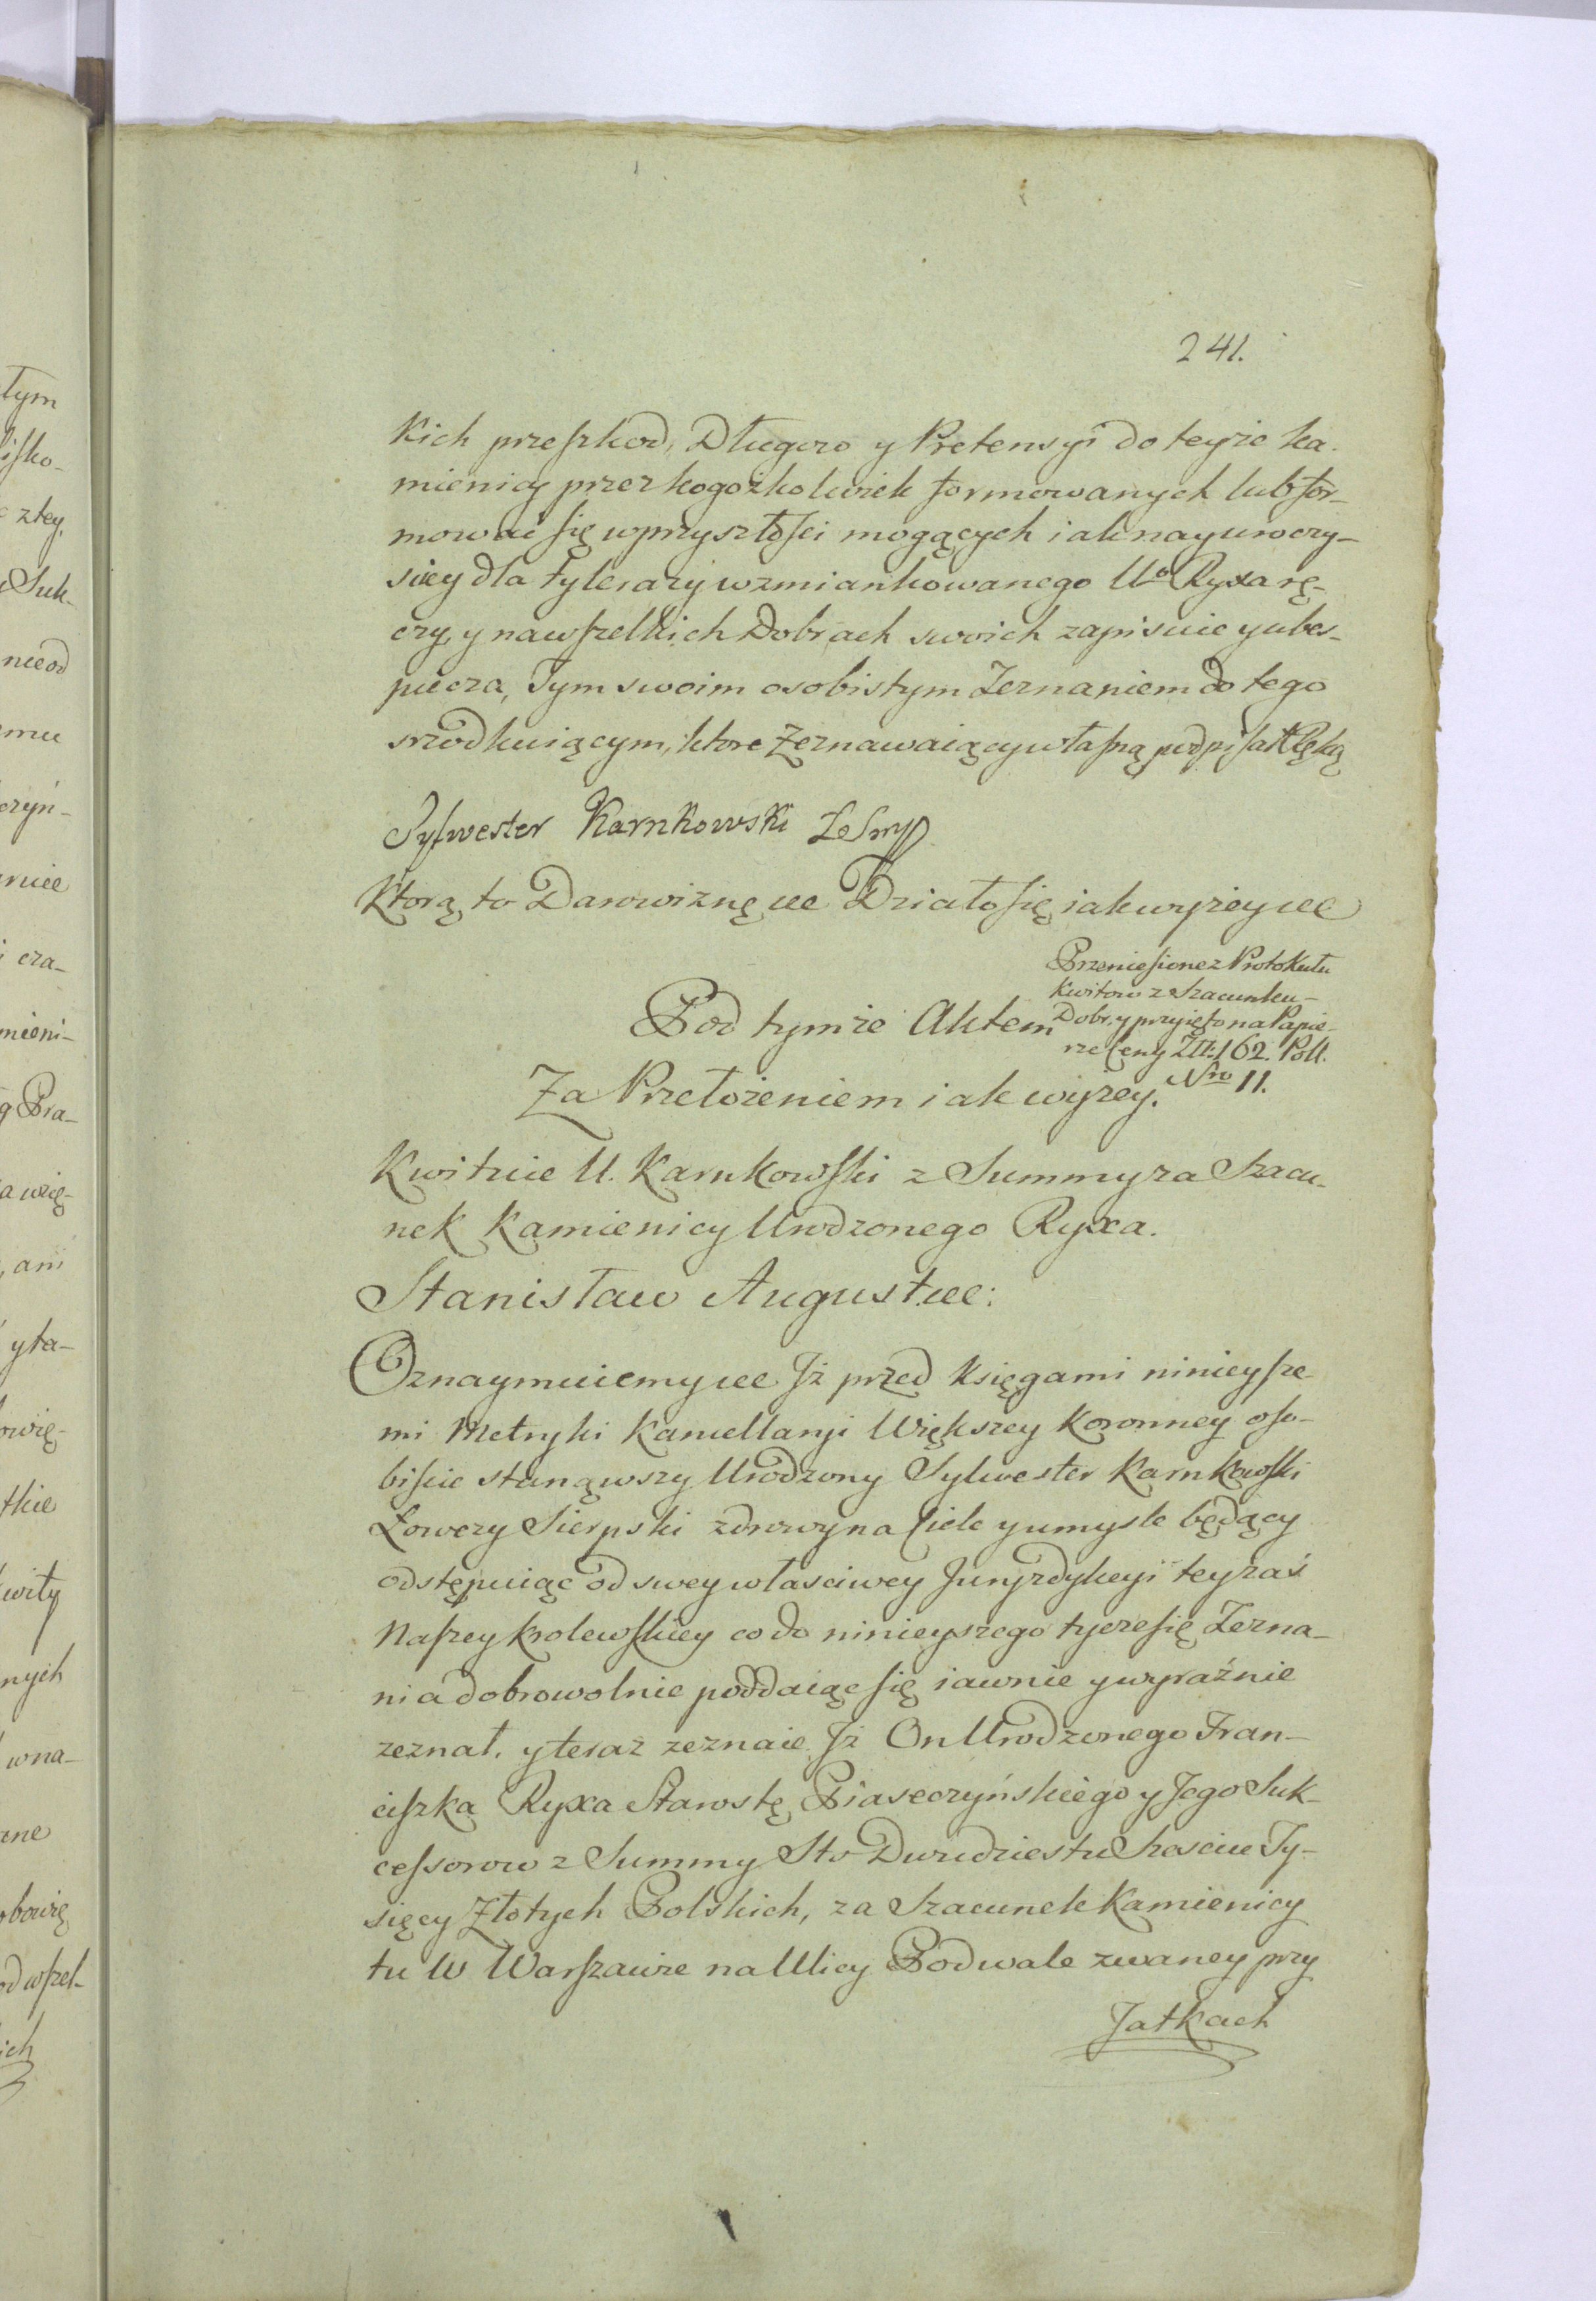 241.
kich przeszkod, Długow y Pretensyi do teyże ka-
mienicy przez kogożkolwiek formowanych lub for-
mować się wprzyszłości mogących iak nayuroczy-
sciey dla tylerazy wzmiankowanego Uo Ryxa rę-
czy, y nawszelkich Dobrach swoich zapisuie y ubes-
piecza, Tym swoim osobistym Zeznaniem do tego
srzodkuiącym, ktore Zeznawaiący własną podpisał Ręką
Sylwester Karnkowski ŁoSmp
Ktorą to Darowiznę etc Działo się iak wyżey etc
Przeniesione z Protokułu
Kwitow z Szacunku
Dobr, y przyięto na Papie-
rze Ceny Złł: 162. Poll.
Nro 11.
Pod tymże Aktem
Za Przełożeniem iak wyżey.
Kwituie U. Karnkowski z Summy za Szacu-
nek Kamienicy Urodzonego Ryxa.
Stanisław August etc:
Oznaymuiemy etc Jż przed Księgami ninieysze-
mi Metryki Kancellaryi Większey Koronney oso-
biscie stanąwszy Urodzony Sylwester Karnkowski
Łowczy Sierpski zdrowy na Ciele y umysle będący
odstępuiąc od swey własciwey Juryzdykcyi teyzaś
Naszey Krolewskiey co do ninieyszego tycze się Zezna-
nia dobrowolnie poddaiąc się iawnie y wyraźnie
zeznał, y teraz zeznaie Jż On Urodzonego Fran-
ciszka Ryxa Starostę Piaseczyńskiego y Jego Suk-
cessorow z Summy Sto Dwudziestu Szesciu Ty-
sięcy Złotych Polskich, za Szacunek Kamienicy
tu w Warszawie na Ulicy Podwale zwaney przy
Jatkach